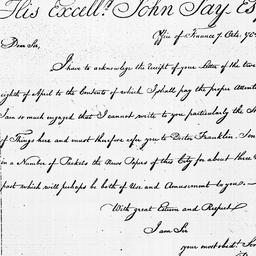 His Excell.y John Jay Esq
Office of Finance 7. Octr. 
Dear Sir,
I have to acknowledge the Receipt of your Letter of the twe
eighth of April to the Contents of which I shall pay the proper Attenti
I am so much engaged that I cannot write to you particularly the
of Things here and must therefore refer you to Doctor Franklin. I
in a Number of Packets the News Papers of this City for about three
past which will perhaps be both of Use and Amusement to you.—
With great Esteem and Respect
I am Sir
your most obedt.